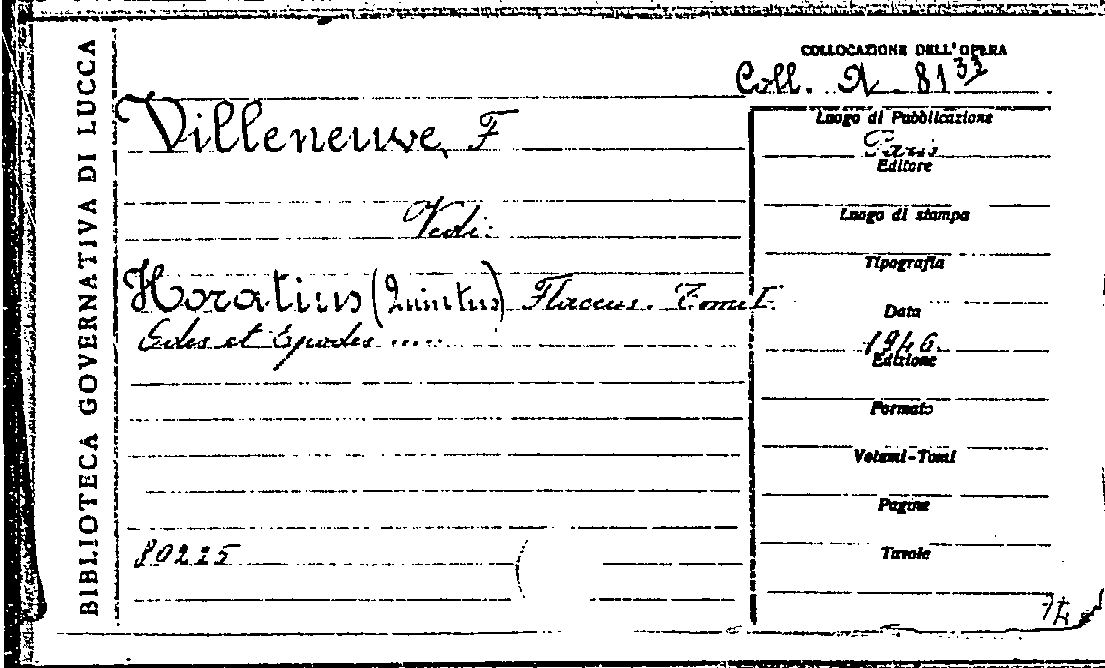 BIBLIOTECA GOVERNATIVA DI LUCCA
COLLOCAZIONE DELL'OPERA
Coll. N. 81³³
Villeneuve, F
Vedi:
Horatius (Quintus) Flaccus. Tome I.
Odes et Epodes .....
80225
Luogo di Pubblicazione
Paris
Editore
Luogo di stampa
Tipografia
Data
1946.
Edizione
Formato
Volumi-Tomi
Pagine
Tavole